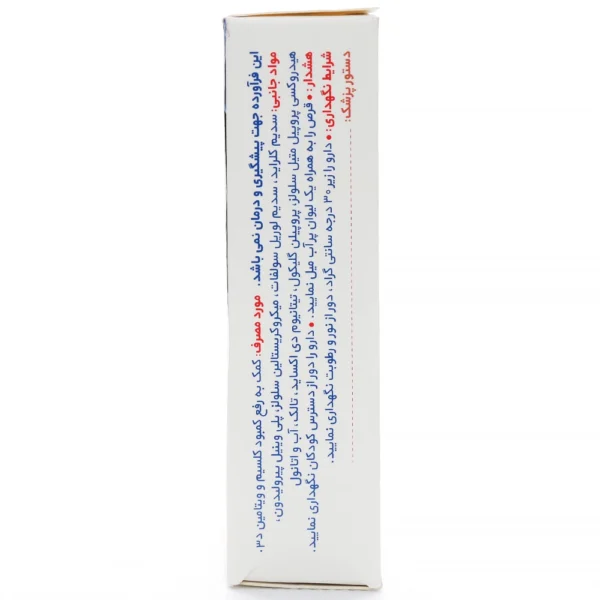 این فرآورده جهت پیشگیری و درمان نمی باشد. مورد مصرف: کمک به رفع کمبود کلسیم و ویتامین د۳.
مواد جانبی: سدیم کلراید، سدیم لوریل سولفات، میکروکریستالین سلولز، پلی وینیل پیرولیدون،
هیدروکسی پروپیل متیل سلولز، پروپیلن گلیکول، تیتانیوم دی اکساید، تالک، آب و اتانول
هشدار: • قرص را به همراه یک لیوان پر آب میل نمایید. • دارو را دور از دسترس کودکان نگهداری نمایید.
شرایط نگهداری: • دارو را زیر ۳۰ درجه سانتی گراد، دور از نور و رطوبت نگهداری نمایید.
دستور پزشک: